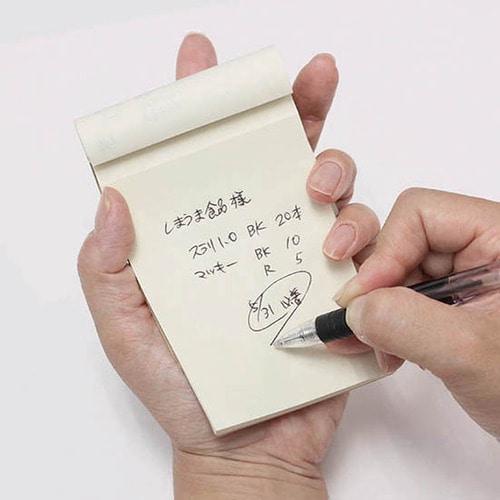 しまうま食品様
スラリ1.0 BK 20本
マッキー BK 10
R 5
5/31 〆